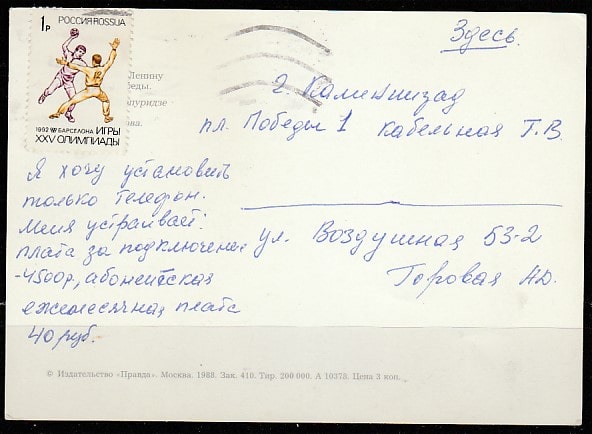 1р РОССИЯ ROSSIJA
1992 БАРСЕЛОНА ИГРЫ
XXV ОЛИМПИАДЫ
Ленину
беды.
Здесь.
г. Калининград
пл. Победы 1 кабельная Т.В.
Я хочу установить
только телефон.
Меня устраивает:
плата за подключение
-4500р, абонентская
ежемесячная плата
40 руб.
ул. Воздушная 53-2
Горовая Н.D.
© Издательство «Правда». Москва. 1988. Зак. 410. Тир. 200 000. А 10378. Цена 3 коп.